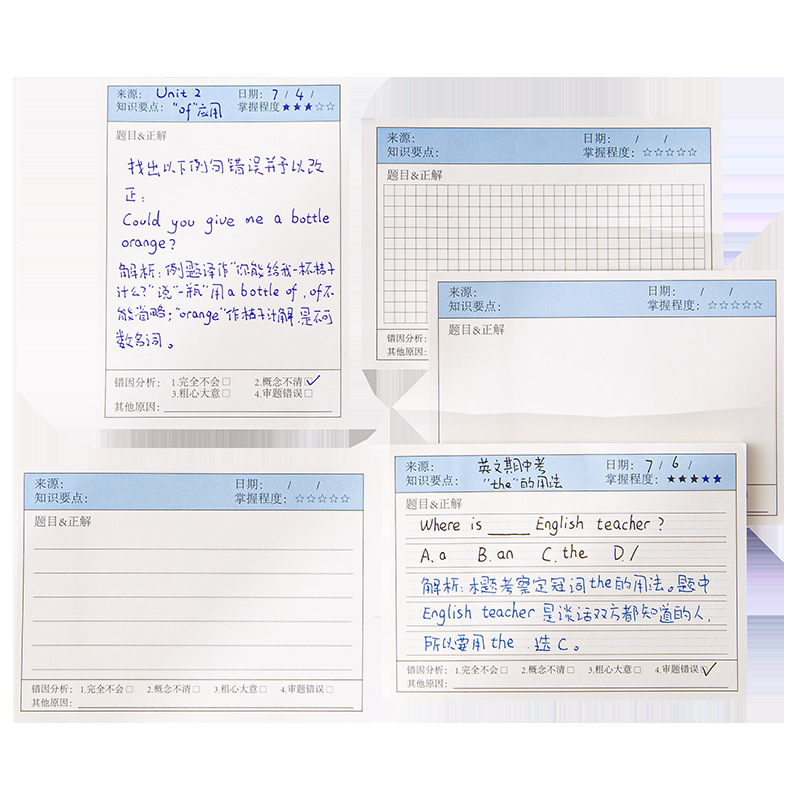 来源： Unit 2 日期： 7 / 4 /
知识要点： "of"应用 掌握程度★★★☆☆
题目&正解
找出以下例句错误并予以改
正：
Could you give me a bottle
orange?
解析：例题译作"你能给我一杯桔子
汁么?"说"一瓶"用a bottle of , of不
能省略；"orange"作桔子汁解,是不可
数名词。
错因分析： 1.完全不会□ 2.概念不清□✓
3.粗心大意□ 4.审题错误□
其他原因：
来源： 日期： / /
知识要点： 掌握程度：☆☆☆☆☆
题目&正解
错因分析：
其他原因：
来源： 日期： / /
知识要点： 掌握程度：☆☆☆☆☆
题目&正解
来源： 日期： / /
知识要点： 掌握程度：☆☆☆☆☆
题目&正解
错因分析： 1.完全不会□ 2.概念不清□ 3.粗心大意□ 4.审题错误□
其他原因：
来源： 英文期中考 日期： 7 / 6 /
知识要点： "the"的用法 掌握程度：★★★★★
题目&正解
Where is ____ English teacher ?
A. a B. an C. the D. /
解析：本题考察定冠词the的用法。题中
English teacher 是谈话双方都知道的人,
所以要用the ,选C。
错因分析： 1.完全不会□ 2.概念不清□ 3.粗心大意□ 4.审题错误□✓
其他原因：